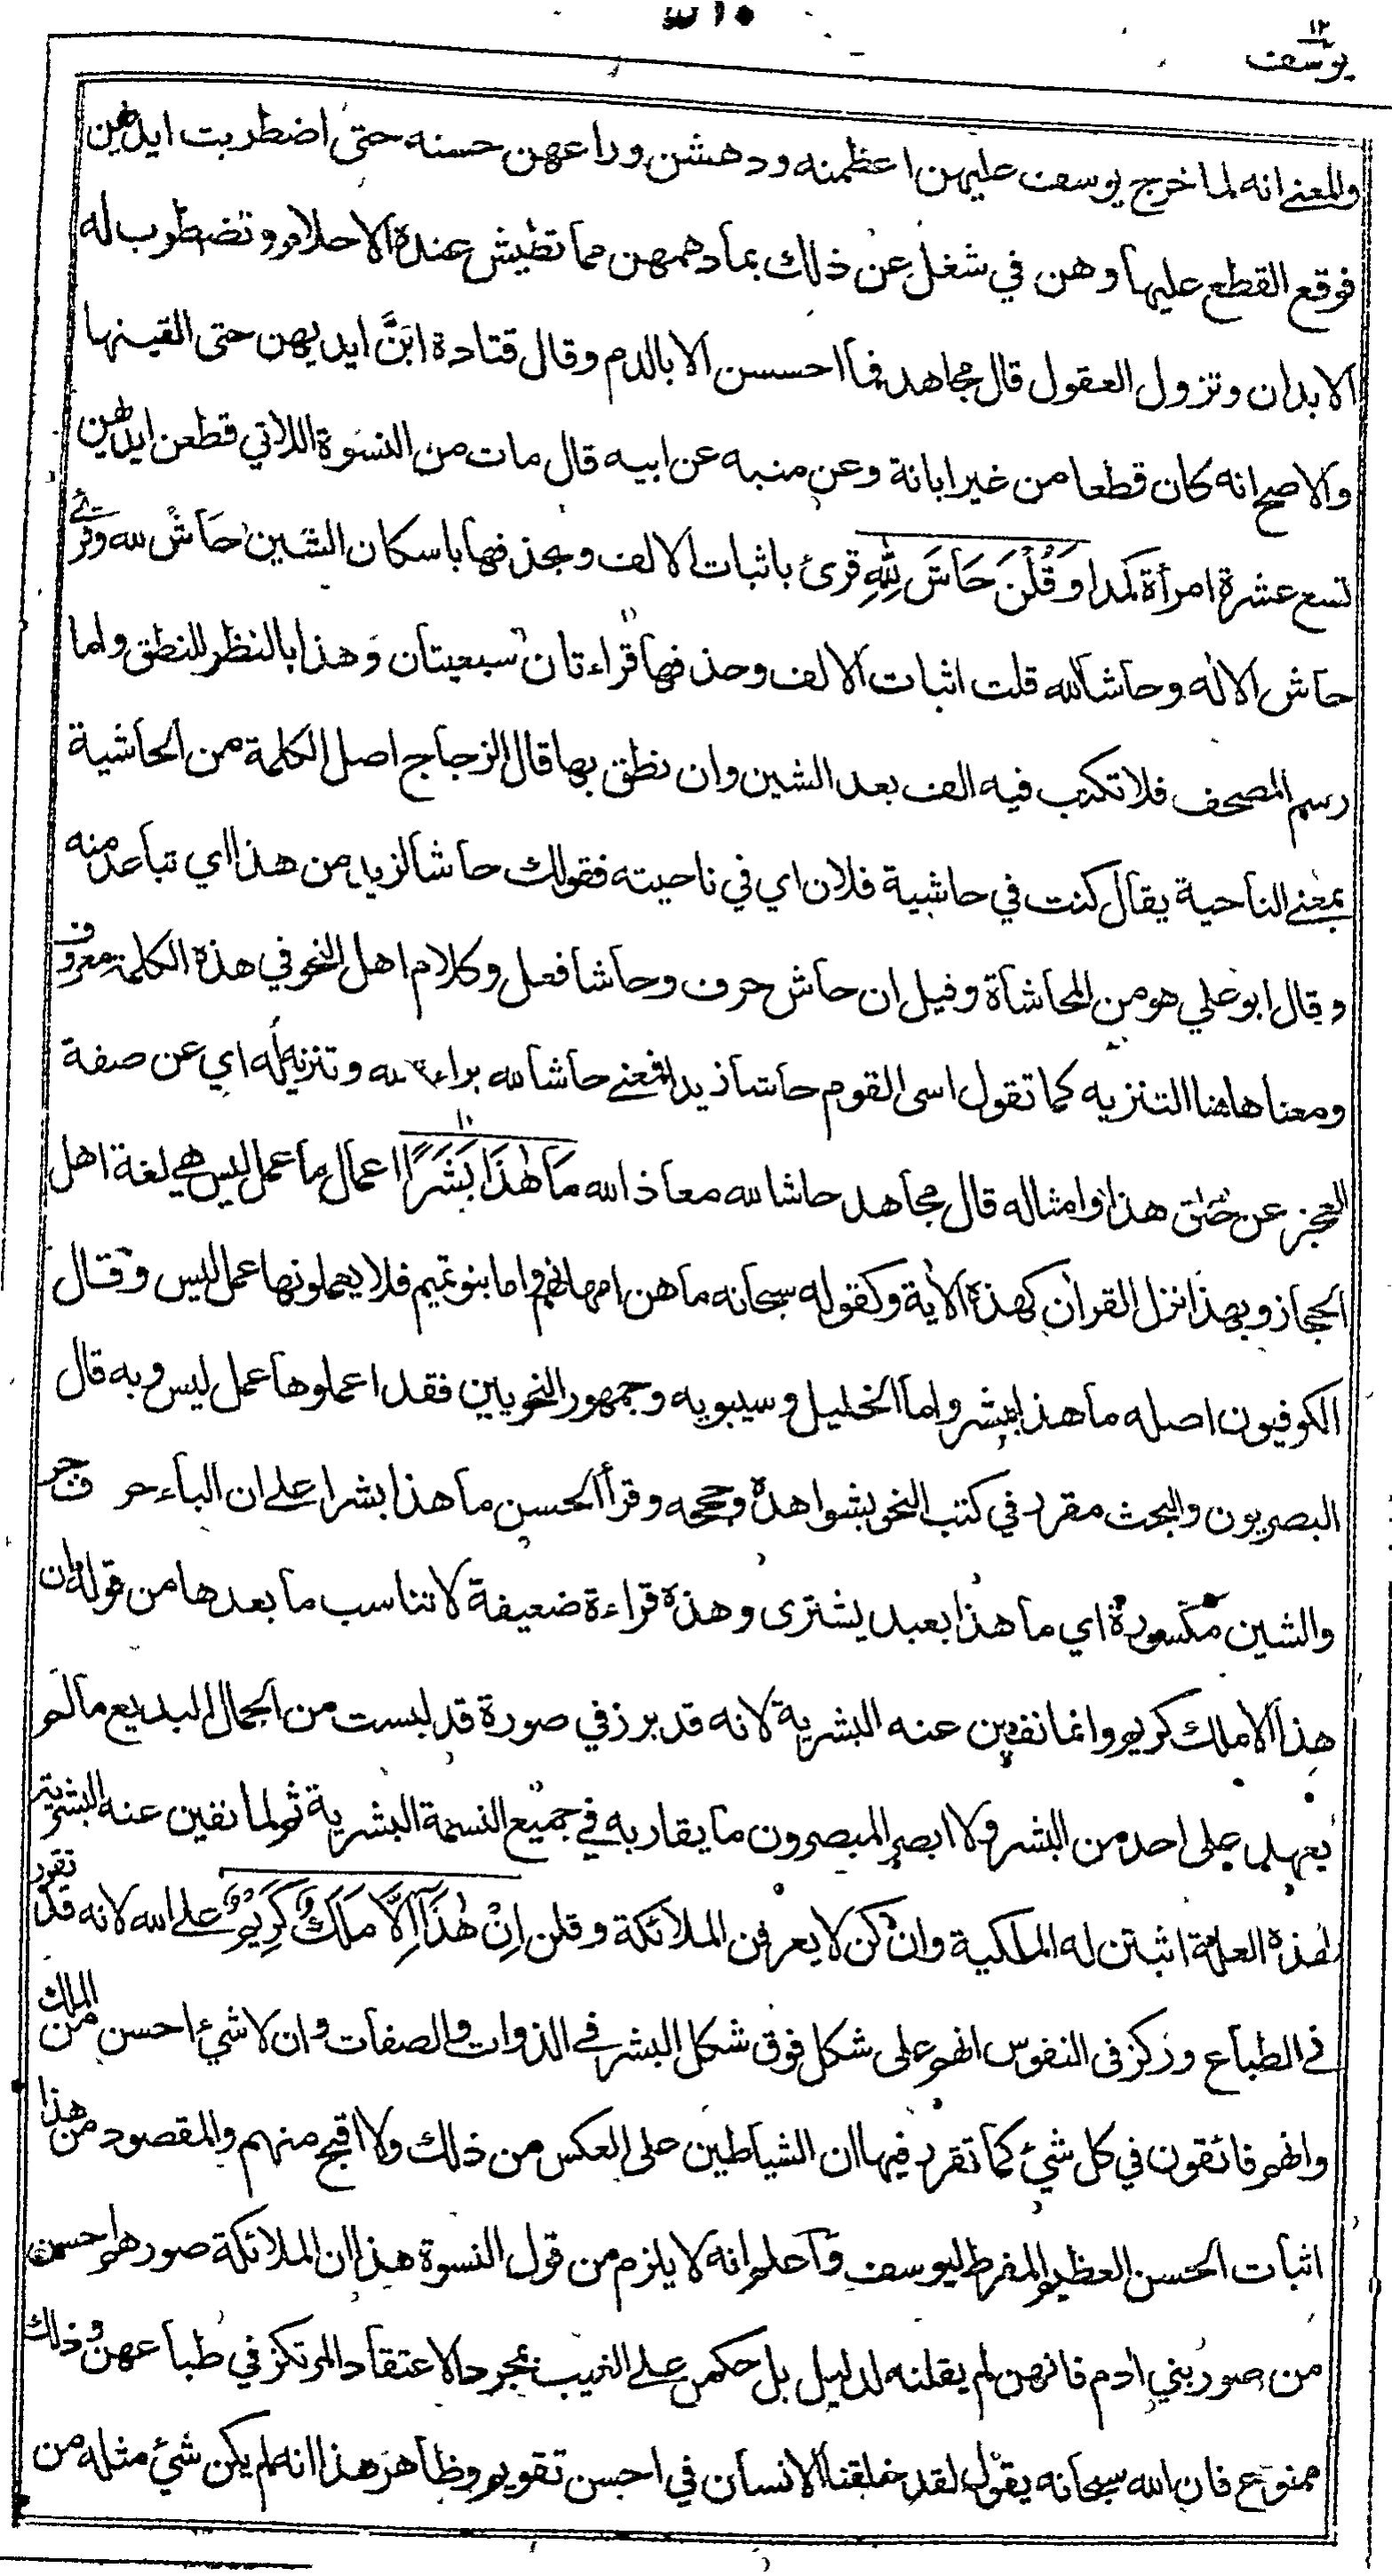 ١٢
يوسف
والمعنى انه لما خرج يوسف عليهن اعظمنه ودهشن وراعهن حسنه حتى اضطربت ايديهن
فوقع القطع عليها وهن في شغل عن ذلك بما دهمهن مما تطيش عنده الاحلام وتضطرب له
الابدان وتزول العقول قال مجاهد فما احسسن الا بالدم وقال قتادة ابَنَّ ايديهن حتى القينها
والاصح انه كان قطعا من غير ابانة وعن منبه عن ابيه قال مات من النسوة اللاتي قطعن ايديهن
تسع عشرة امرأة كمدا وَقُلْنَ حَاشَ لِلّٰهِ قرئ باثبات الالف وبحذفها باسكان الشين حَاشْ لله وقرئ
حاش الاله وحاشا لله قلت اثبات الالف وحذفها قراءتان سبعيتان وهذا بالنظر للنطق واما
رسم المصحف فلا تكتب فيه الف بعد الشين وان نطق بها قال الزجاج اصل الكلمة من الحاشية
بمعنى الناحية يقال كنت في حاشية فلان اي في ناحيته فقولك حاشا لزيد من هذا اي تباعد منه
وقال ابو علي هو من المحاشاة وقيل ان حاش حرف وحاشا فعل وكلام اهل النحو في هذه الكلمة معروف
ومعناها هنا التنزيه كما تقول اسى القوم حاشا زيدا فمعنى حاشا لله براءة لله وتنزيه له اي عن صفة
العجز عن خلق هذا وامثاله قال مجاهد حاشا لله معاذ الله مَا هٰذَا بَشَرًا اعمال ما عمل ليس هي لغة اهل
الحجاز وبهذا نزل القران كهذه الآية وكقوله سبحانه ما هن امهاتهم واما بنو تميم فلا يعملونها عمل ليس وقال
الكوفيون اصله ما هذا ببشر واما الخليل وسيبويه وجمهور النحويين فقد اعملوها عمل ليس وبه قال
البصريون والبحث مقرر في كتب النحو بشواهده وحججه وقرأ الحسن ما هذا بشرا على ان الباء حرف جر
والشين مكسورة اي ما هذا بعبد يشترى وهذه قراءة ضعيفة لا تناسب ما بعدها من قوله ان
هذا الا ملك كريم وانما نفين عنه البشرية لانه قد برز في صورة قد لبست من الجمال البديع ما لم
يعهد على احد من البشر ولا ابصر المبصرون ما يقاربه في جميع النسمة البشرية ثم لما نفين عنه البشرية
لهذه العلة اثبتن له الملكية وان كن لا يعرفن الملائكة وقلن اِنْ هٰذَآ اِلَّا مَلَكٌ كَرِيْمٌ على الله لانه قد تقرر
في الطباع وركز في النفوس انهم على شكل فوق شكل البشر في الذوات والصفات وان لا شيء احسن من الملك
وانهم فائقون في كل شيء كما تقرر فيها ان الشياطين على العكس من ذلك ولا اقبح منهم والمقصود من هذا
اثبات الحسن العظيم المفرط ليوسف واعلم انه لا يلزم من قول النسوة هذا ان الملائكة صورهم احسن
من صور بني ادم فانهن لم يقلنه لدليل بل حكمن على الغيب بمجرد الاعتقاد المرتكز في طباعهن وذلك
ممنوع فان الله سبحانه يقول لقد خلقنا الانسان في احسن تقويم وظاهر هذا انه لم يكن شيء مثله من